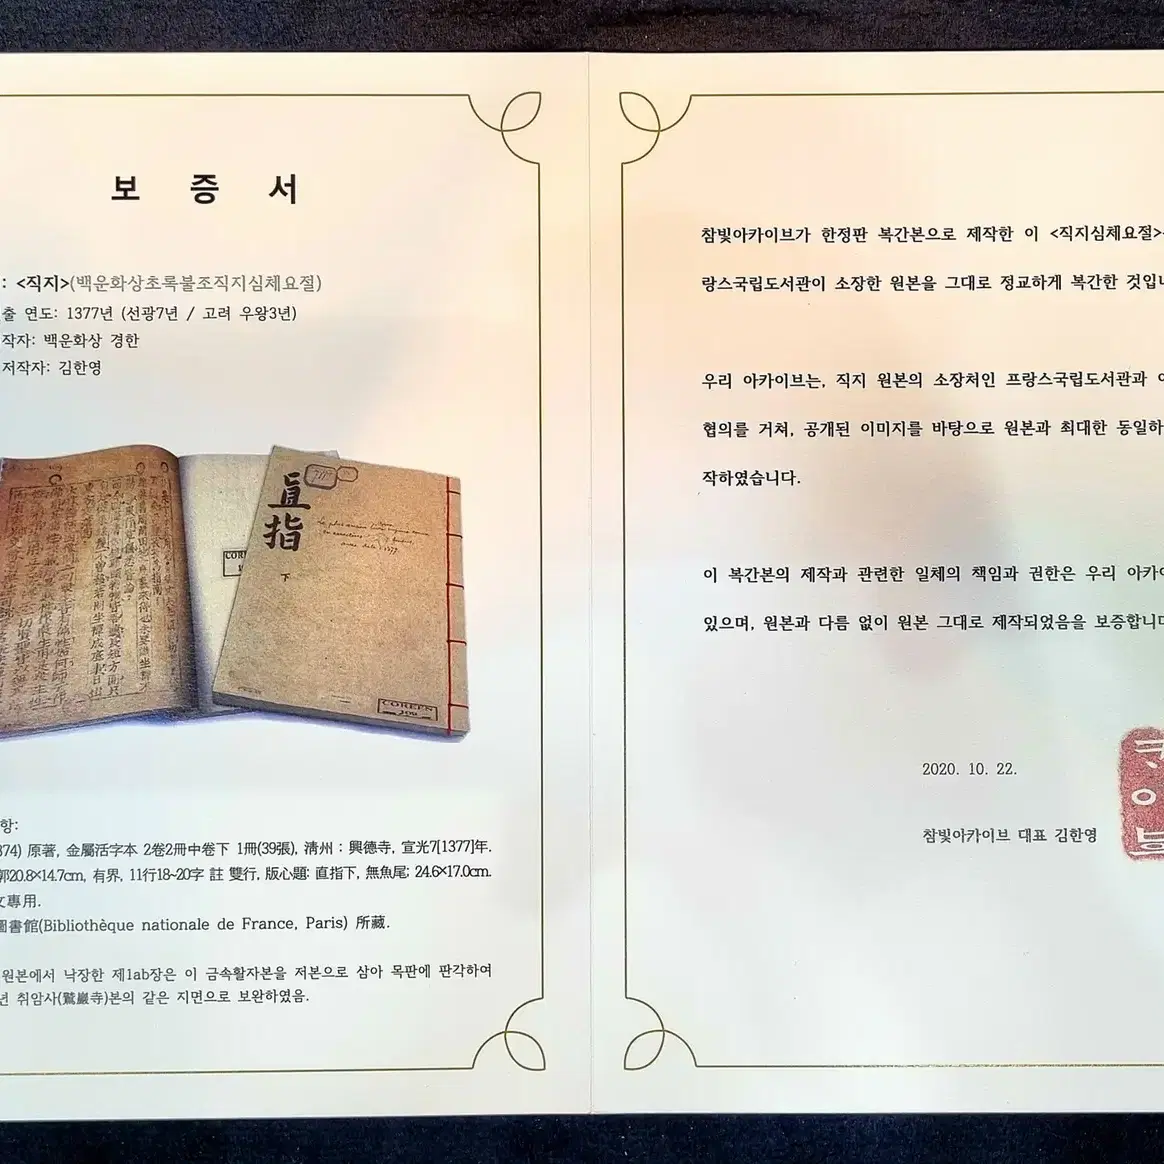 보 증 서
: <직지>(백운화상초록불조직지심체요절)
출 연도: 1377년 (선광7년 / 고려 우왕3년)
작자: 백운화상 경한
저작자: 김한영
直指
下
COREEN
109
항:
374) 原著, 金屬活字本 2卷2冊中卷下 1冊(39張), 淸州 : 興德寺, 宣光7[1377]年.
郭20.8×14.7cm, 有界, 11行18~20字 註 雙行, 版心題: 直指下, 無魚尾; 24.6×17.0cm.
文專用.
圖書館(Bibliothèque nationale de France, Paris) 所藏.
원본에서 낙장한 제1ab장은 이 금속활자본을 저본으로 삼아 목판에 판각하여
년 취암사(鷲巖寺)본의 같은 지면으로 보완하였음.
참빛아카이브가 한정판 복간본으로 제작한 이 <직지심체요절>
랑스국립도서관이 소장한 원본을 그대로 정교하게 복간한 것입니
우리 아카이브는, 직지 원본의 소장처인 프랑스국립도서관과
협의를 거쳐, 공개된 이미지를 바탕으로 원본과 최대한 동일하
작하였습니다.
이 복간본의 제작과 관련한 일체의 책임과 권한은 우리 아카이
있으며, 원본과 다름 없이 원본 그대로 제작되었음을 보증합니다
2020. 10. 22.
참빛아카이브 대표 김한영